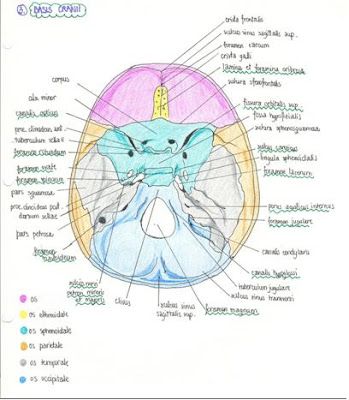 BASIS CRANII
crista frontalis
sulcus sinus sagittalis sup.
foramen caecum
crista galli
lamina et foramina cribrosa
sutura sfenofrontalis
fissura orbitalis sup.
fossa hypofisialis
sutura sphenosquamosa
sulcus caroticus
lingula sphenoidalis
foramen lacerum
porus acusticus internus
foramen jugulare
canalis condylaris
canalis hypoglossi
tuberculum jugulare
sulcus sinus transversi
foramen magnum
sulcus sinus
sagittalis sup.
clivus
corpus
ala minor
canalis opticus
proc. clinoideus ant.
tuberculum sellae
foramen rotundum
foramen ovale
foramen spinosum
pars squamosa
proc. clinoideus post.
dorsum sellae
pars petrosa
foramen
mastoideum
petrosi minoris
et majoris
os
os ethmoidale
os sphenoidale
os parietale
os temporale
os occipitale